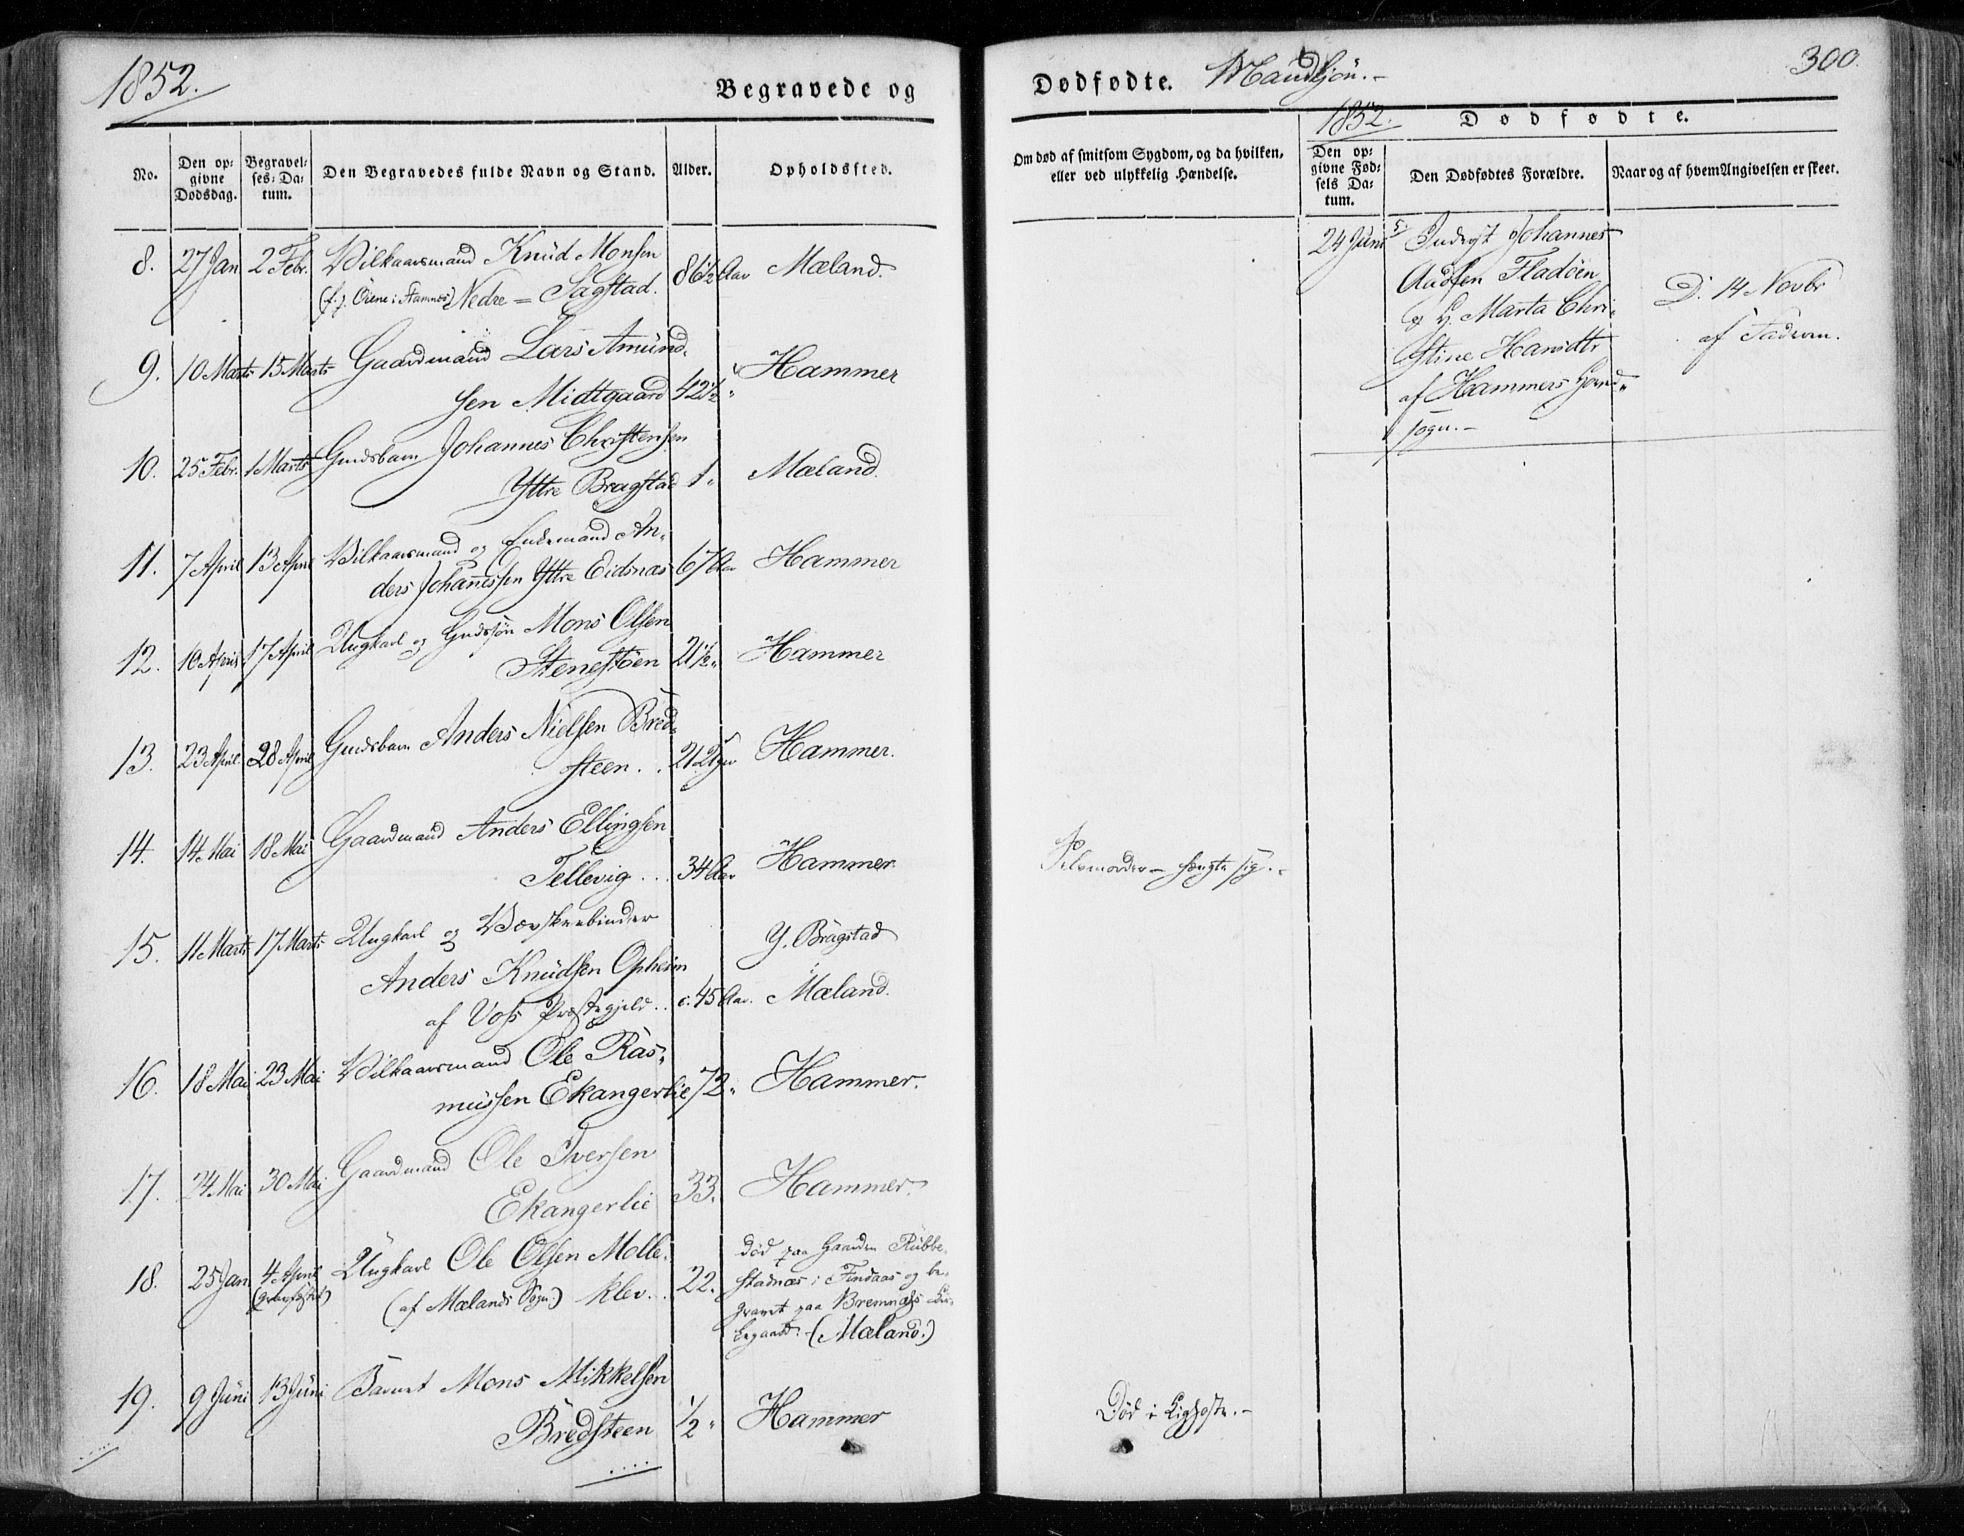 1852.
Begravede og
No.
Den opgivne Dødsdag.
Begravelses-Datum.
Den Begravedes fulde Navn og Stand.
Alder.
Opholdssted.
8. 27 Jan 2 Febr. Vilkaarsmand Knud Monsen 86½ Aar Mæland.
Nedre = Sagstad.
9. 10 Marts 15 Marts Gaardmand Lars Amund-
sen Midtgaard 42½ " Hammer
10. 25 Febr. 1 Marts Gmdsbarn Johannes Christensen
Yttre Bragstad 1 " Mæland.
11. 7 April 13 April Vilkaarsmand og Enkemand An-
ders Johannessen Yttre Eidsnæs 67 Aar Hammer
12. 10 April 17 April Ungkarl og Gmdssøn Mons Olsen
Stenestøen 21½ " Hammer
13. 23 April 28 April Gmdsbarn Anders Nielsen Bred-
steen . . Hammer.
14. 14 Mai 18 Mai Gaardmand Anders Ellingsen
Tellevig . . . 34 Aar Hammer
15. 11 Marts 17 Marts Ungkarl og Vævskeebinder
Y. Bragstad
Anders Knudsen Opheim
af Voss Præstegjeld . . c. 45 Aar. Mæland.
16. 18 Mai 23 Mai Vilkaarsmand Ole Ras-
mussen Ekangerlie 72 " Hammer.
17. 24 Mai 30 Mai Gaardmand Ole Iversen
Ekangerlie 33. Hammer.
18. 25 Jan 4 April Ungkarl Ole Olsen Mølle-
(af Mælands Sogn.) klev. . . 22.
Død paa Gaarden Rubbe-
stadnæs i Findaas og be-
gravet paa Bremnæs Kir-
kegaard. - (Mæland.)
19. 9 Juni 13 Juni Barnet Mons Mikkelsen
Bredsteen ½ " Hammer
Dødfødte. Mandkjøn. -
300.
Om død af smitsom Sygdom, og da hvilken,
eller ved ulykkelig Hændelse.
1852.
Dødfødte.
Den opgivne Fødsels Datum.
Den Dødfødtes Forældre.
Naar og af hvem Angivelsen er skeet.
24 Juni
Inderst Johannes
Fladøen
og H. Marta Chri-
stine Hansdtr
af Hammers Hovd-
sogn. -
D. 14 Novbr
af Faderen.
Selvmorder - hængte sig. -
Død i Kighoste. -